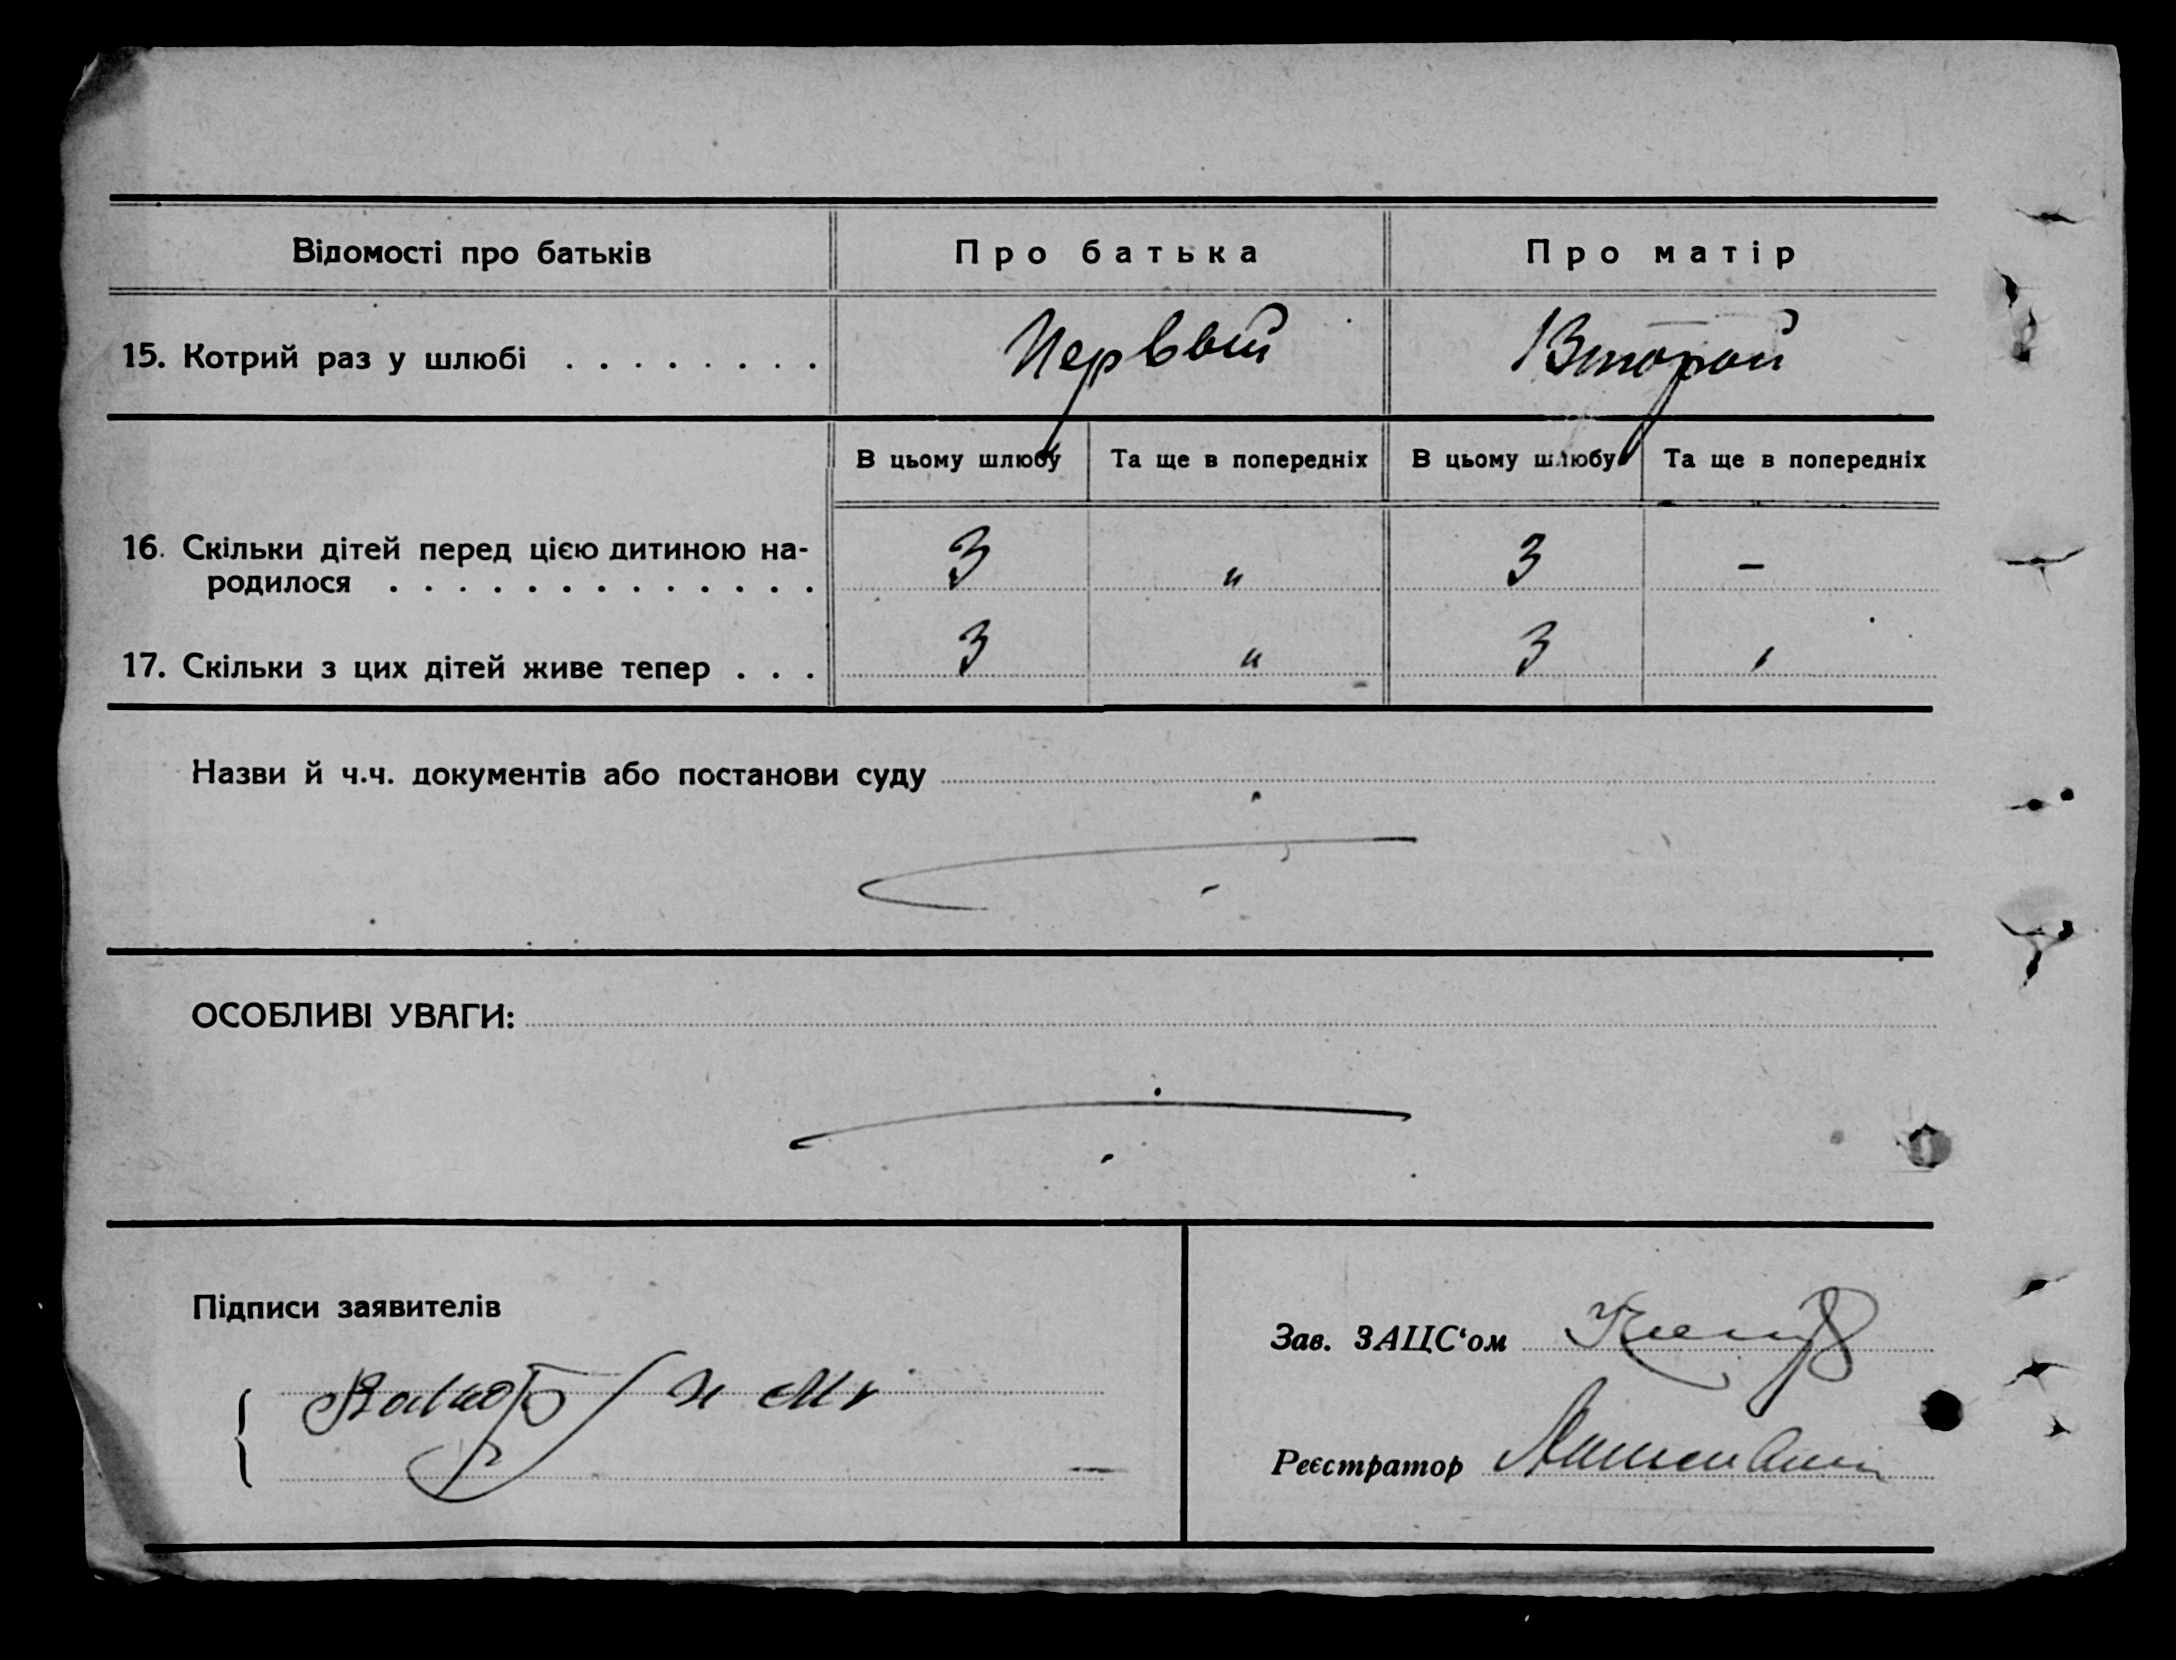 Відомості про батьків Про батька Про матір
15. Котрий раз у шлюбі . . . . . . . . Первый Второй
В цьому шлюбу Та ще в попередніх В цьому шлюбу Та ще в попередніх
16. Скільки дітей перед цією дитиною на-
родилося . . . . . . . . . . . . . 3 " 3 -
17. Скільки з цих дітей живе тепер . . . 3 " 3 '
Назви й ч.ч. документів або постанови суду
ОСОБЛИВІ УВАГИ:
Підписи заявителів
Зав. ЗАЦС‘ом
Реєстратор